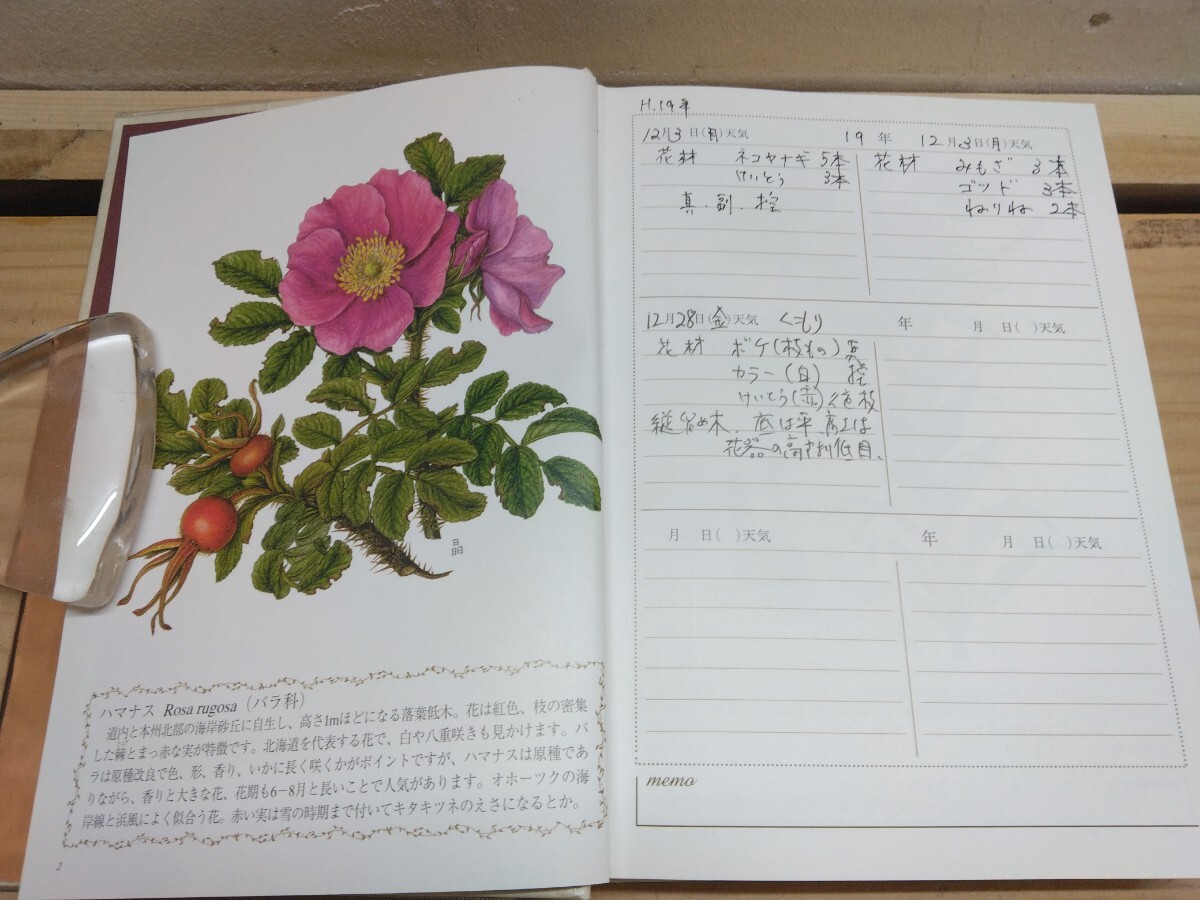 晶
ハマナス Rosa rugosa (バラ科)
道内と本州北部の海岸砂丘に自生し、高さ1mほどになる落葉低木。花は紅色、枝の密集
した棘とまっ赤な実が特徴です。北海道を代表する花で、白や八重咲きも見かけます。バ
ラは原種改良で色、形、香り、いかに長く咲くかがポイントですが、ハマナスは原種であ
りながら、香りと大きな花、花期も6−8月と長いことで人気があります。オホーツクの海
岸線と浜風によく似合う花。赤い実は雪の時期まで付いてキタキツネのえさになるとか。
2
H.19年
12月3日(月)天気
花材 ネコヤナギ 5本
けいとう 3本
真.副.控
19年 12月3日(月)天気
花材 みもざ 3本
ゴッド 3本
ねりね 2本
12月28日(金)天気 くもり
花材 ボケ(枝もの)
カラー(白) 控
けいとう(赤)
縦留め木、底は平
花器の高さ
年 月 日( )天気
月 日( )天気
年 月 日( )天気
memo